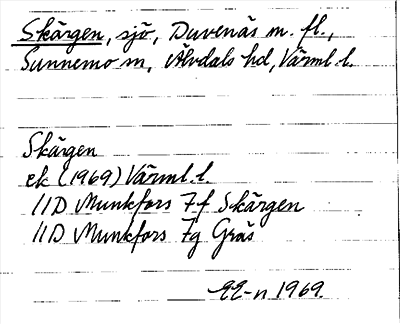 Skärgen, sjö, Duvenäs m. fl.,
Sunnemo sn, Älvdals hd, Värml. l.
Skärgen
ek (1969) Värml. l.
11D Munkfors 7f Skärgen
11D Munkfors 7g Gräs
1969.